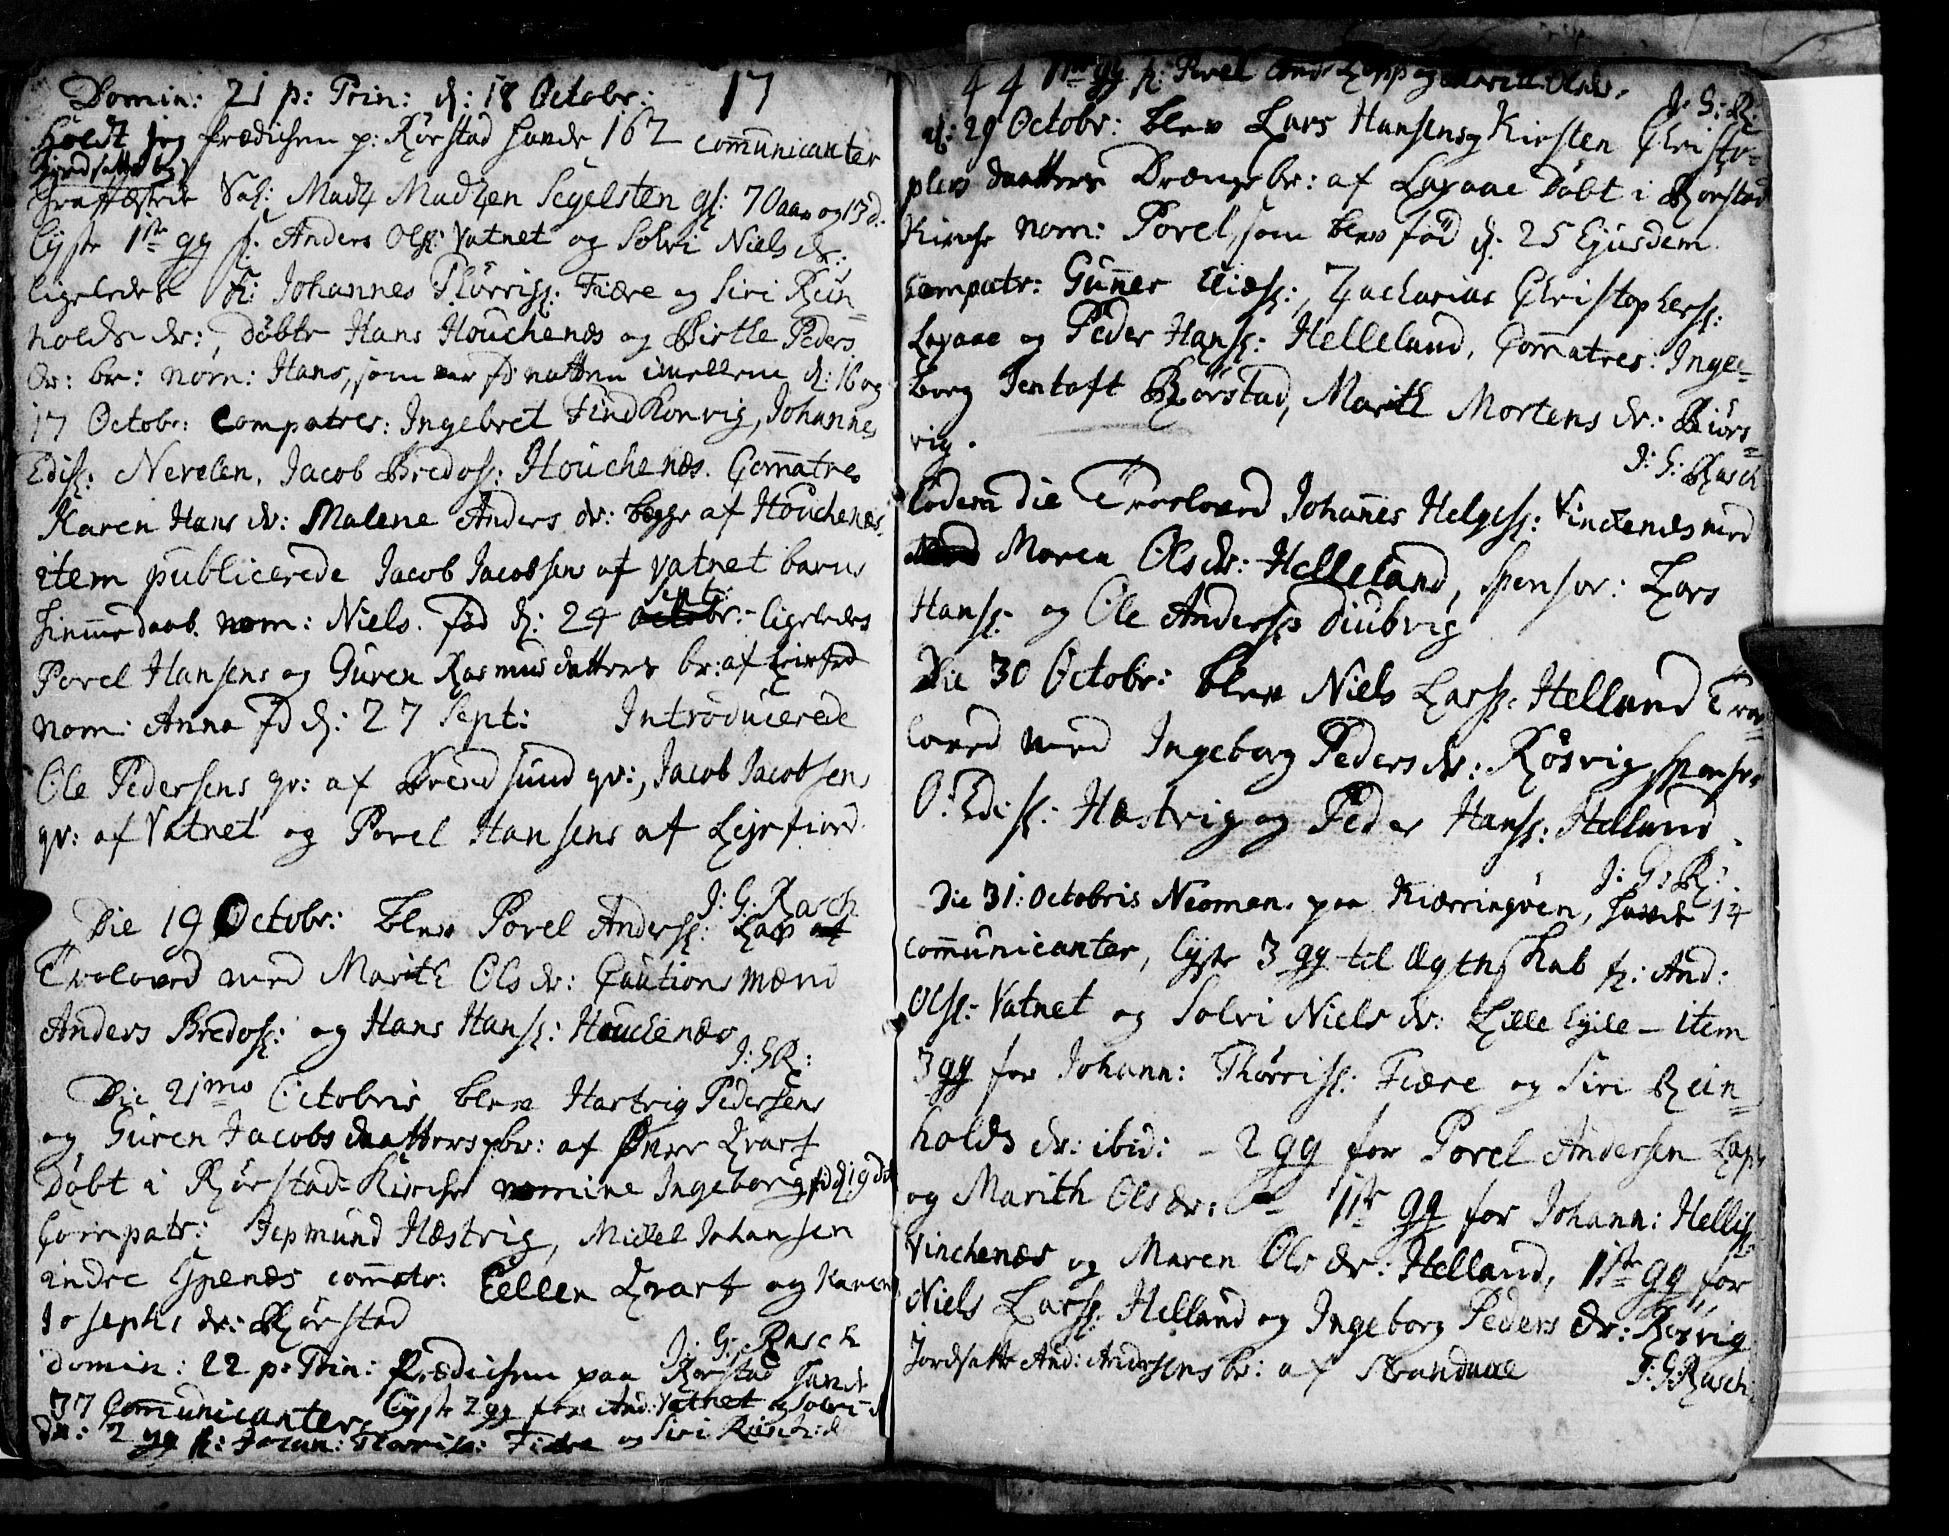 Domin: 21 p: Trin: d: 18 Octobr: 17
holdt jeg prædichen p: Rørstad hande 162 communicanter
jordsatte
Sal: Madz Madzen Segelsten gl: 70 aar og 13 d.
lyste 1ste gg f: Anders Ols: Vatnet og Solvi Niels dr:
ligeledes f: Johannes Thørris: Fiære og Siri Rein=
holds dr:, døbte Hans Houchenæs og Birthe Peders
dr: br: nom: Hans, som var fød natten imellem d: 16 og
17 Octobr: Compatres: Ingebret Findkonvig, Johannes
Edis: Nevelen, Jacob Bredos: Houchenæs. Com̄atres
Karen Hans dr: Malene Anders dr: begge af Houchenæs.
item publicerede Jacob Jacobsens af Vatnet barns
hiemmedaab. nom: Niels. fød d: 24 Sept: octobr: - ligeledes
Povel Hansens og Guren Rasmusdatters br: af Leirfiord
nom: Anna fød d: 27 Sept: Introducerede
Ole Pedersens qv: af Brendsund qv:, Jacob Jacobsens
qv: af Vatnet og Povel Hansens af Lejrfiord.
J: G: Rasch
Die 19 Octobr: blev Povel Anders: Lap
Troloved med Marith Ols dr: Cautions mænd
Anders Bredos: og Hans Hans: Houchenæs
J: G R:
Die 21mo Octobris blev Hartvig Pedersens
og Guren Jacobs daatters br: af Øvre Qvarf
Døbt i Rørstad Kirche nomine Ingeborg fød d 19 do
Compatr: Jepmund Hæstvig, Mickel Johansen
indre Gpenæs com̄atr: Eellen Qvarf og Karen
Josephs dr: Rørstad
J: G: Rasch
Domin: 22 p: Trin: Prædichen paa Rørstad hande
37 Communicanter, lyste 2 gg for And: Vatnet og Solvi N
dr: 2 gg f: Johan: Thørris: Fiære og Siri Reinh: d
44 1ste gg f: Povel And: Lapp og Marith Olsdr.
J: G: R:
d: 29 Octobr: blev Lars Hansens og Kirsten Christo=
phers daatters Drængebr: af Laxaae Døbt i Rørstad
Kirche nom: Povel, som blev fød d: 25 Ejusdem.
Compatr: Gunner Elias:, Zacharias Christophers:
Laxaae og Peder Hans: Helleland, Com̄atres: Inge=
borg Jentoft Rørstad, Marith Mortens dr: Biørs=
vig.
J: G: Rasch
Eodem die Troloved Johannes Helges: Vinckenæs med
Maren Ols dr: Helleland, sponsor: Lars
Hans: og Ole Anders: Diubvig
Die 30 Octobr: blev Niels Lars: Helland Tro=
loved med Ingeborg Peders dr: Røsvig, sponsr:
O: Edis: Hæstvig og Peder Hans: Helland.
J: G: R:
Die 31: Octobris Neomen. paa Kiærringøen, hande 14
com̄unicanter, lyste 3 gg til Ægteskab f: And:
Ols: Vatnet og Solvi Niels dr: Lille Eyde - item
3 gg for Johann: Thørris: Fiære og Siri Rein=
holds dr: ibid: - 2 gg for Povel Andersen Lap
og Marith Ols dr: 1ste gg for Johann: Hellis:
Vinchenæs og Maren Ols dr: Helland, 1ste gg for
Niels Lars: Helland og Ingeborg Peders dr: Røsvig
Jordsatte And: Andersens br: af Strandaae
J: G: Rasch: